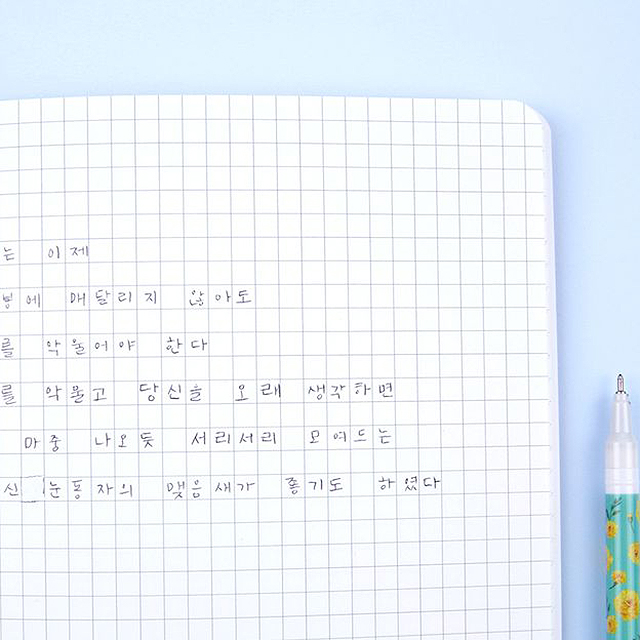 는 이제
병에 매달리지 않아도
를 악물어야 한다
를 악물고 당신을 오래 생각하면
마중 나오듯 서리서리 모여드는
신 눈동자의 맺음새가 좋기도 하였다